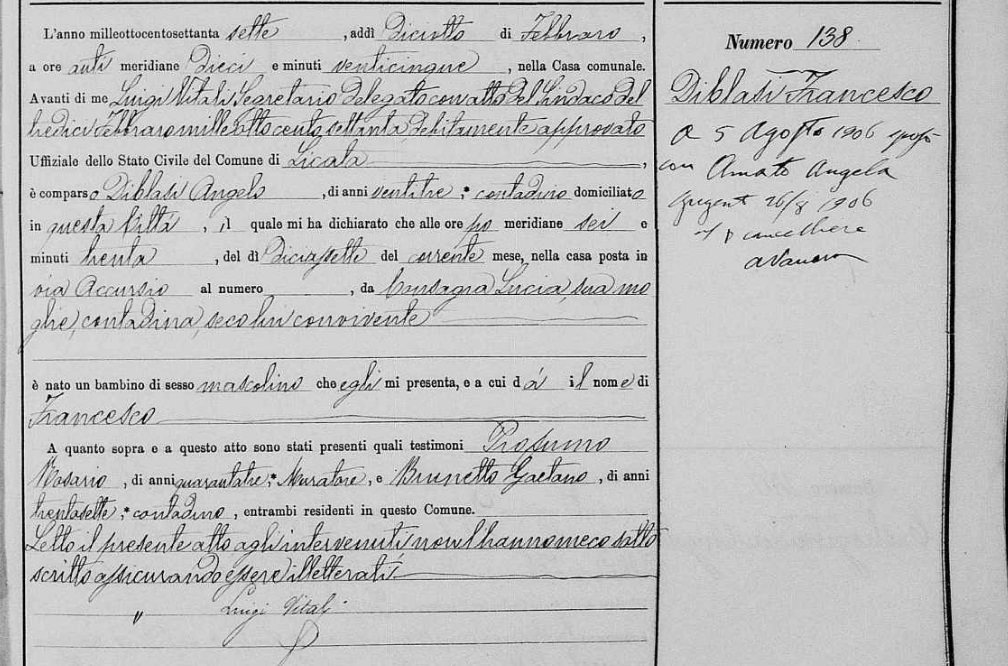 L'anno milleottocentosettanta sette, addì Diciotto di Febbraro,
a ore anti meridiane Dieci e minuti venticinque, nella Casa comunale.
Avanti di me Luigi Vitali Segretario delegato con atto del Sindaco del
tredici Febbraro mille otto cento settanta, debitamente approvato
Uffiziale dello Stato Civile del Comune di Licata,
è comparso Diblasi Angelo, di anni ventitre, contadino domiciliato
in questa Città, il quale mi ha dichiarato che alle ore po meridiane sei e
minuti trenta, del dì Diciassette del corrente mese, nella casa posta in
via Accursio al numero, da Consagra Lucia, sua mo
glie, contadina, seco lui convivente
è nato un bambino di sesso mascolino che egli mi presenta, e a cui dà il nome di
Francesco
A quanto sopra e a questo atto sono stati presenti quali testimoni Profumo
Rosario, di anni quarantatre, Muratore, e Brunetto Gaetano, di anni
trentasette, contadino, entrambi residenti in questo Comune.
Letto il presente atto agli intervenuti non l'hanno meco sotto
scritto assicurando essere illetterati
Luigi Vitali
Numero 138
Diblasi Francesco
A 5 Agosto 1906 sposò
con Amato Angela
Girgenti 26/8 1906
cancelliere